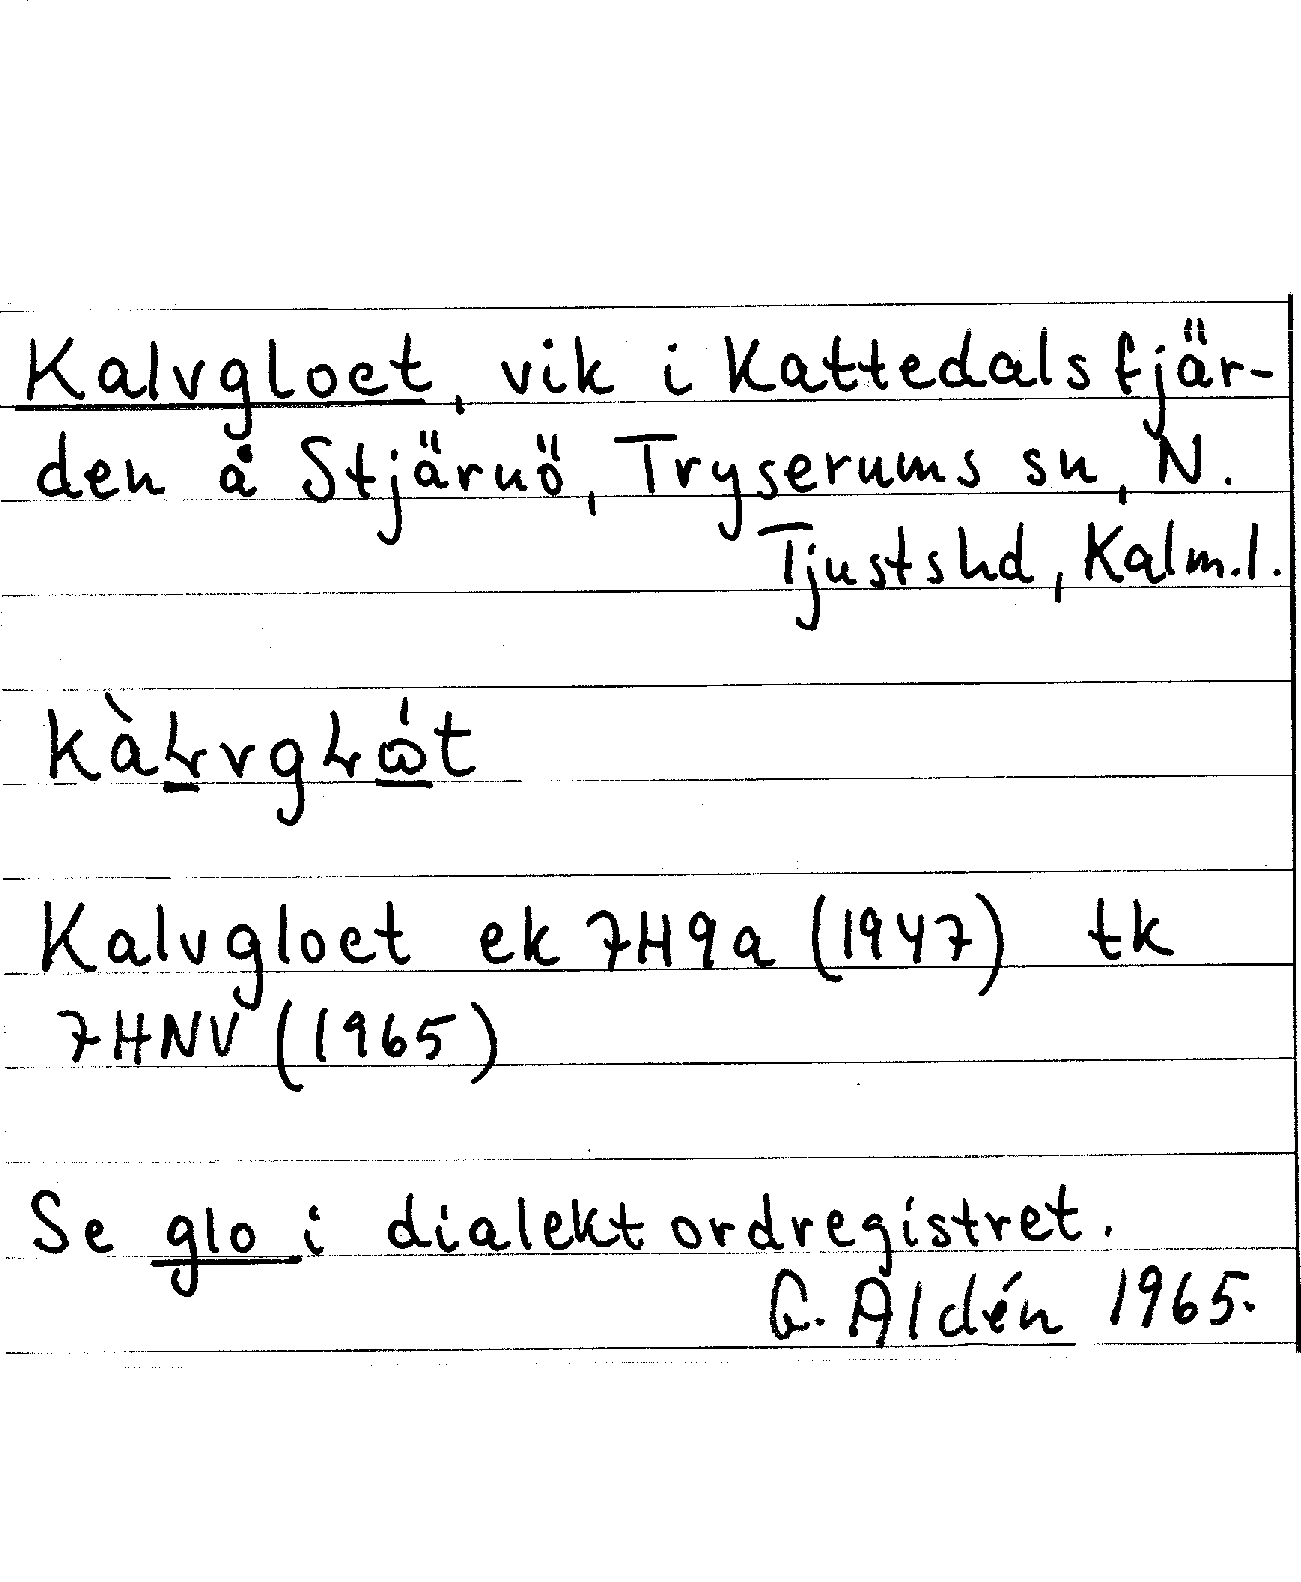 Kalvgloet, vik i Kattedalsfjär-
den å Stjärnö, Tryserums sn, N.
Tjustshd, Kalm.l.
kàꞎvgꞎω̇́t
Kalvgloet ek 7H9a (1947) tk
7HNV (1965)
Se glo i dialektordregistret.
G. Aldén 1965.